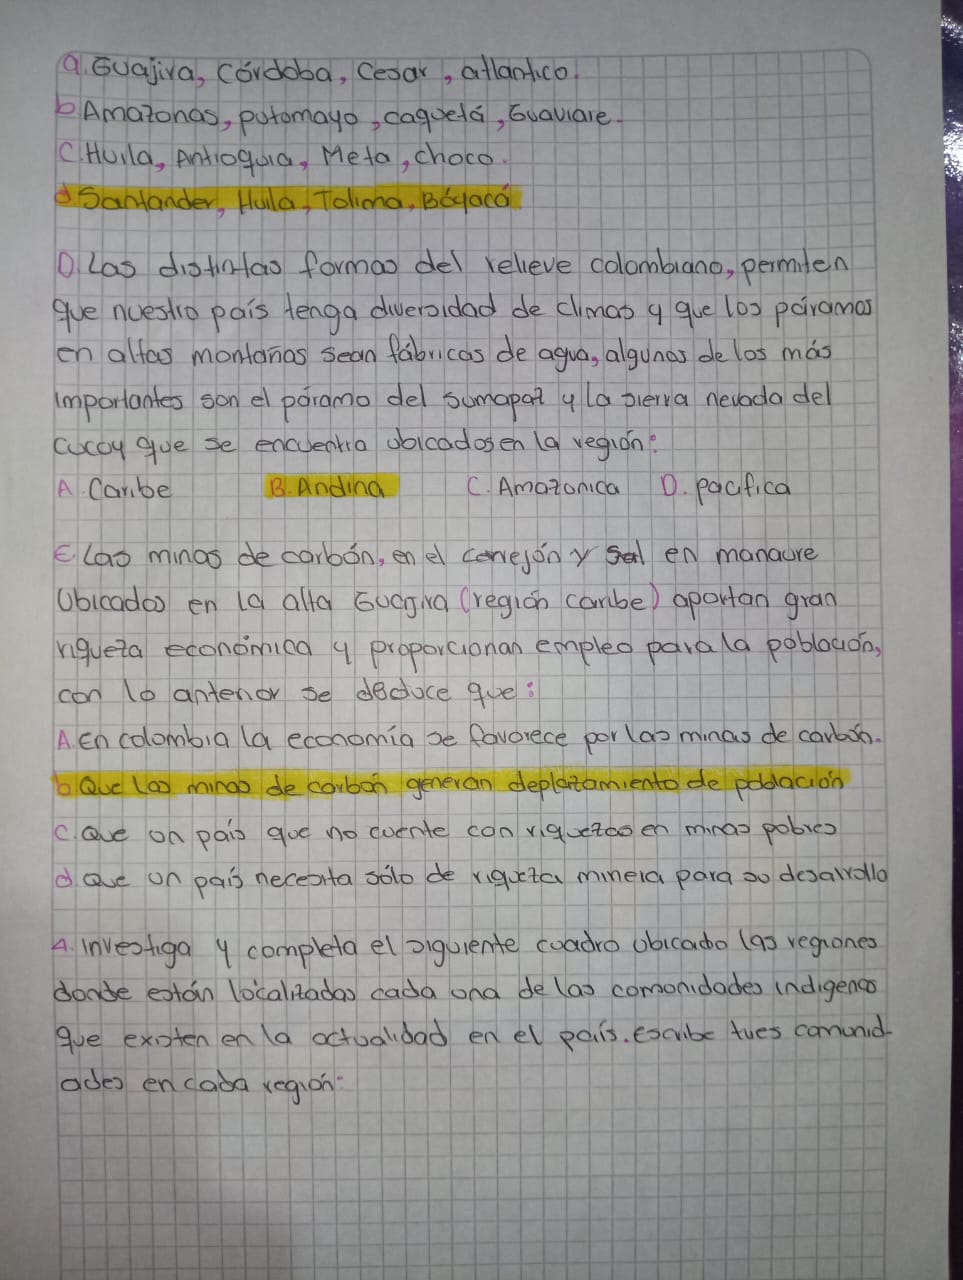 a. Guajira, Córdoba, Cesar, atlantico.
b Amazonas, putomayo, caquetá, Guaviare.
C. Huila, Antioquia, Meta, choco.
d Santander, Huila, Tolima, Bóyacá
D. Las distintas formas del relieve colombiano, permiten
que nuestro país tenga diversidad de climas y que los páramos
en altas montañas sean fábricas de agua, algunos de los más
importantes son el páramo del sumapaz y la sierra nevada del
cucoy que se encuentra ubicados en la región:
A. Caribe B. Andina C. Amazonica D. pacifica
E. Las minas de carbón, en el cerrejón y sal en manaure
Ubicadas en la alta Guajira (región caribe) aportan gran
riqueza económica y proporcionan empleo para la población,
con lo anterior se deduce que:
A. En colombia la economía se favorece por las minas de carbón.
b Que las minas de carbón generan deplazamiento de poblacion
C. Que un país que no cuente con riquezas en minas pobres
d Que un país necesita sólo de riqueza minera para su desarrollo
4. Investiga y completa el siguiente cuadro ubicado las regiones
donde están localizadas cada una de las comunidades indigenas
que existen en la actualidad en el país. Escribe tues comunid-
ades en cada región: